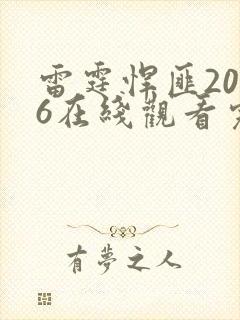 雷霆悍匪20
6在綫觀看完
有夢之人